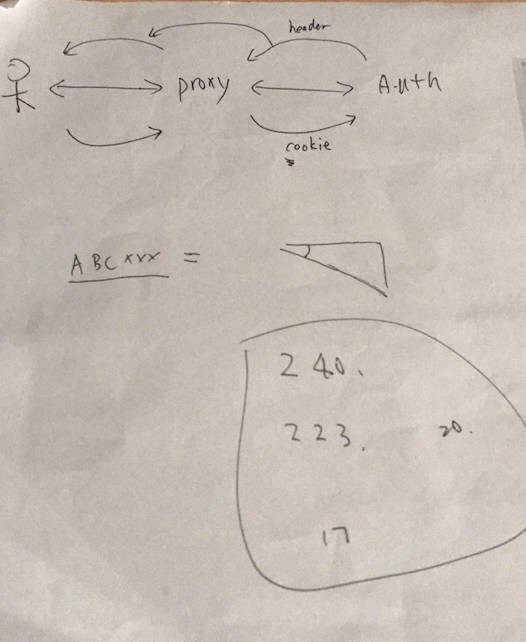 header
proxy Auth
cookie
ABCxxx =
240.
223. 20.
17